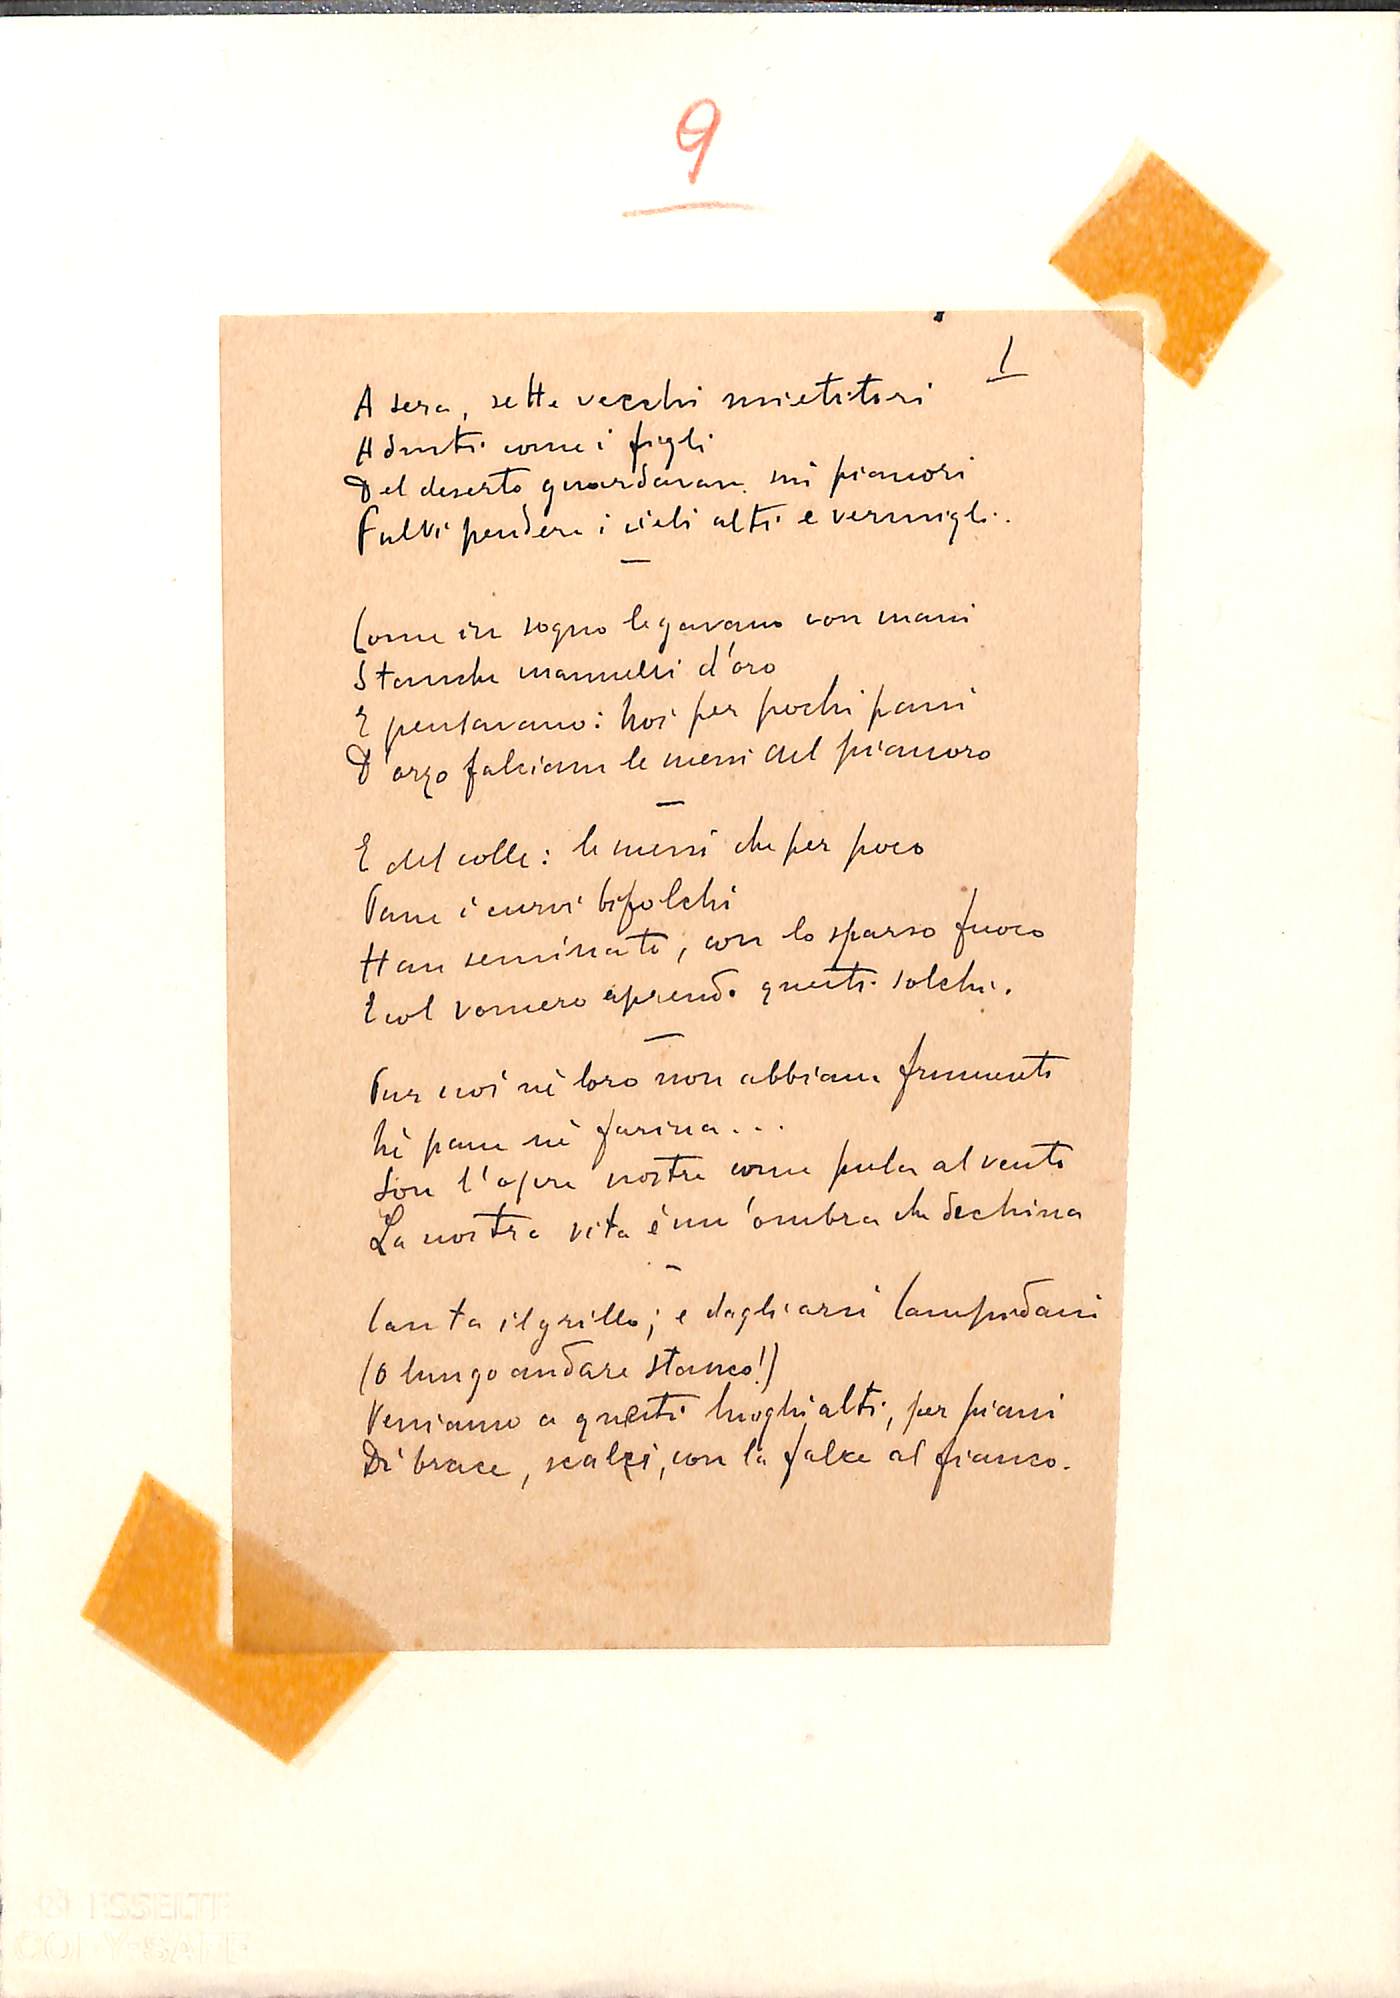 9
1
A sera, sette vecchi mietitori
Adusti come i figli
Del deserto guardavan sui pianori
Fulvi pendere i cieli alti e vermigli.
Come in sogno legavano con mani
Stanche mannelli d'oro
E pensavano: Noi per pochi pani
D'orzo falciam le messi del pianoro
E del colle: le messi che per poco
Pane i curvi bifolchi
Han seminato, con lo sparso fuoco
E col vomero aprendo questi solchi.
Pur noi nè loro non abbiam frumento
Nè pane nè farina...
Son l'opre nostre come pula al vento
La nostra vita è un'ombra che dechina
Canta il grillo; e dagli arsi Campidani
(O lungo andare stanco!)
Veniamo a questi luoghi alti, per piani
Di brace, scalzi, con la falce al fianco.
ESSELTE
COPY-SAFE